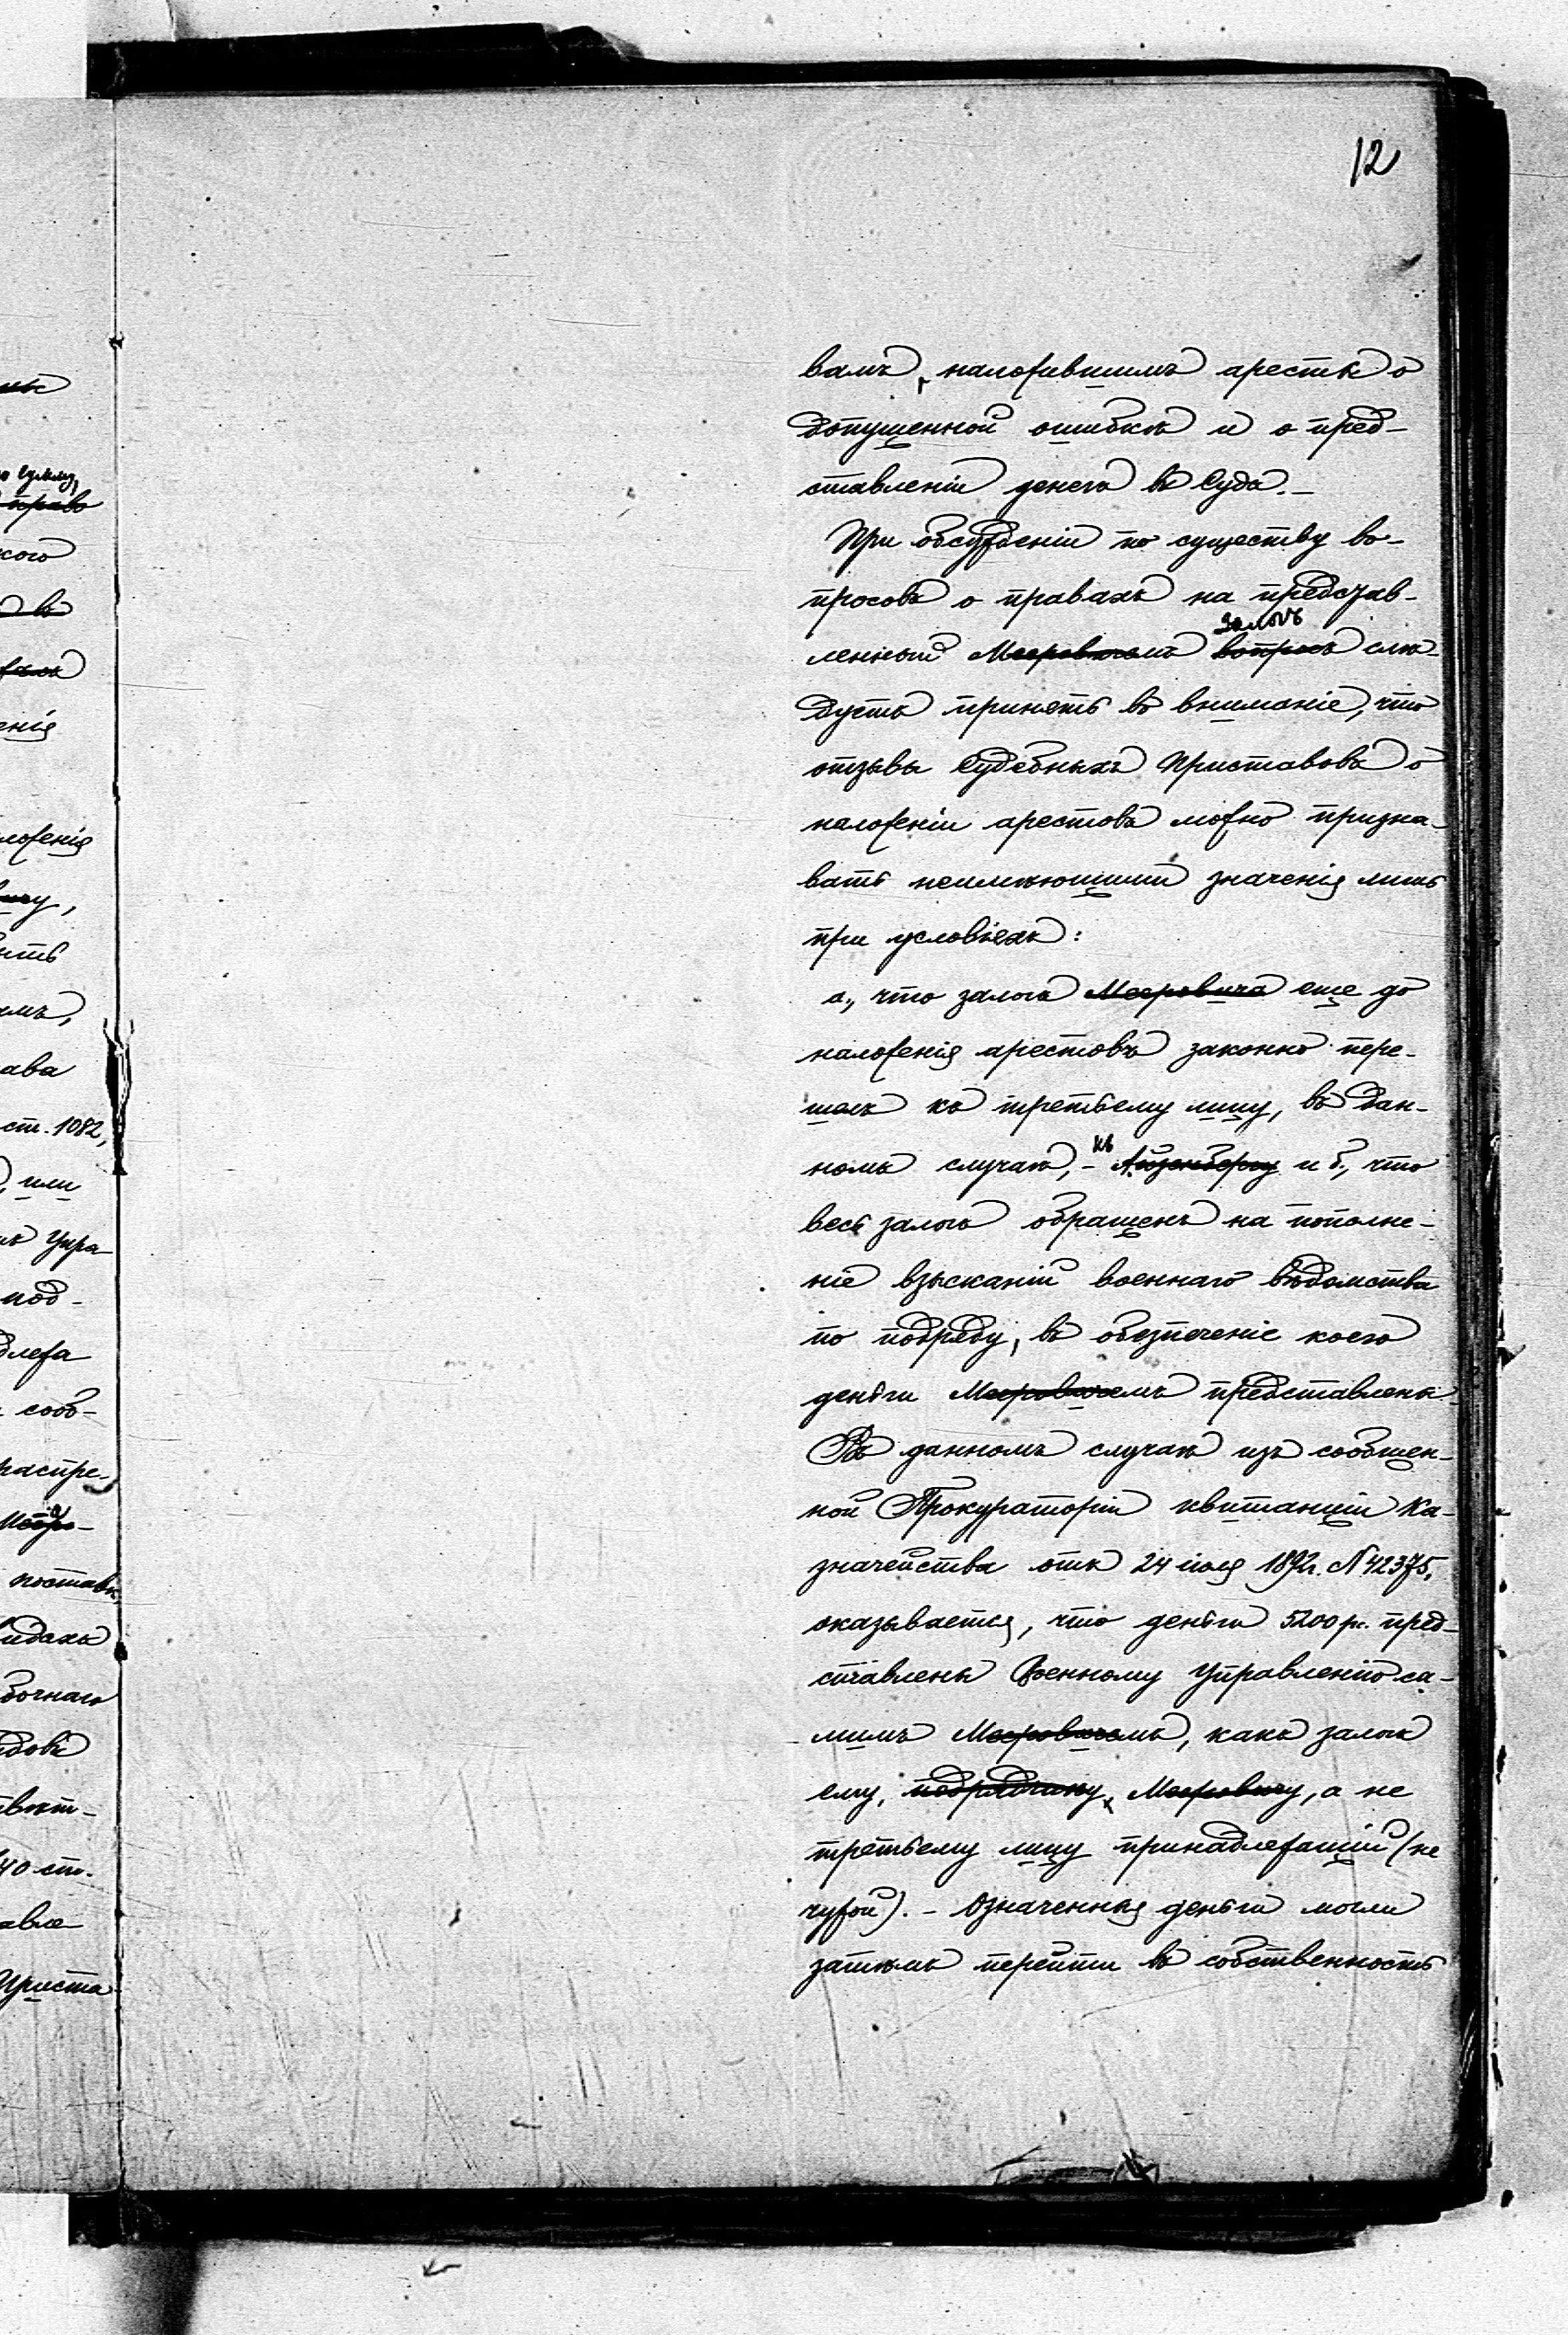 12
вамъ, наложившимъ арестъ о
допущенной ошибкѣ и о пред-
ставленіи денегъ въ Судъ. –
При обсужденіи по существу во-
просовъ о правахъ на представ-
залогъ
ленный Мееровичемъ вопросъ слѣ-
дуетъ принять во вниманіе, что
отзывы Судебныхъ Приставовъ о
наложеніи арестовъ можно призна-
вать неимѣющими значенія лишь
при условіяхъ:
а., что залогъ Мееровича еще до
наложенія арестовъ законно пере-
шелъ къ третьему лицу, въ дан-
номъ случаѣ, – къ Айзенбергу и б., что
весь залогъ обращенъ на пополне-
ніе взысканій военнаго вѣдомства
по подряду, въ обезпеченіе коего
деньги Мееровичемъ представлены.
Въ данномъ случаѣ изъ сообщен-
ной Прокураторіи квитанціи Ка-
значейства отъ 24 іюля 1892 г. N 42375,
оказывается, что деньги 5200 р. пред-
ставлены Военному Управленію са-
мимъ Мееровичемъ, какъ залогъ
ему, подрядчику, Мееровичу, а не
третьему лицу принадлежащій (не
чужой). – Означенныя деньги могли
затѣмъ перейти въ собственность
кого
енія
ложенія
ава
ст. 1082,
или
Упра-
под-
длежа
сооб-
распре-
поставкѣ
40 ст.
авле
Приста